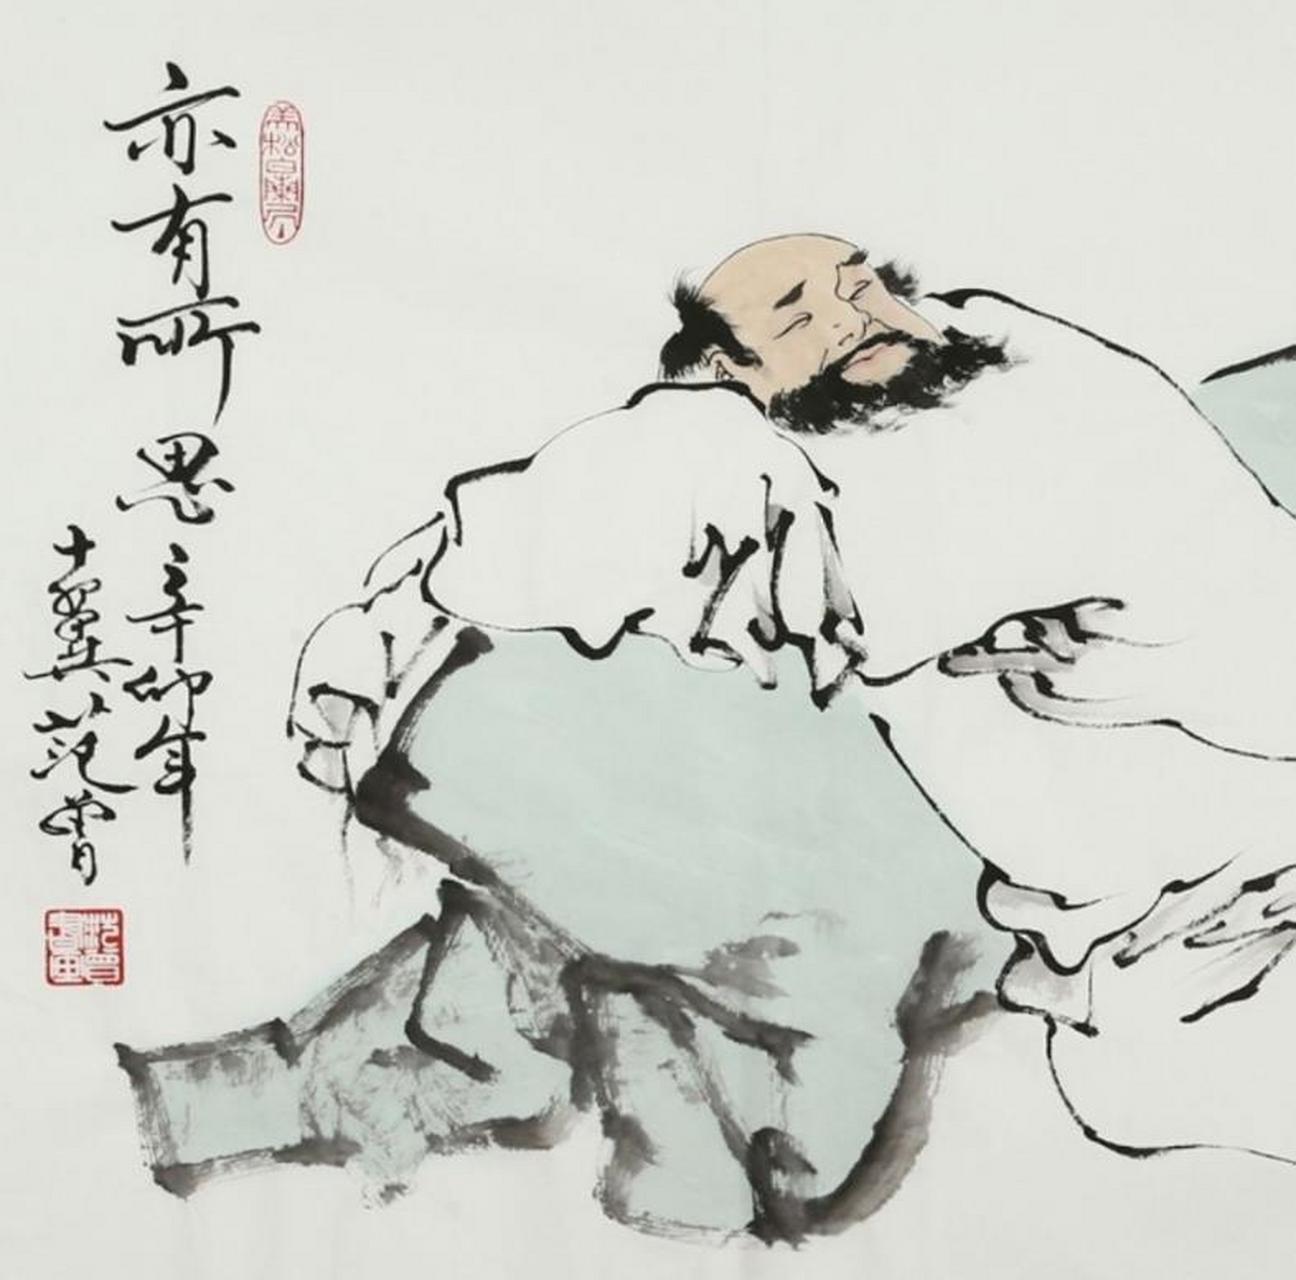 亦有所思
辛卯年
十翼范曾